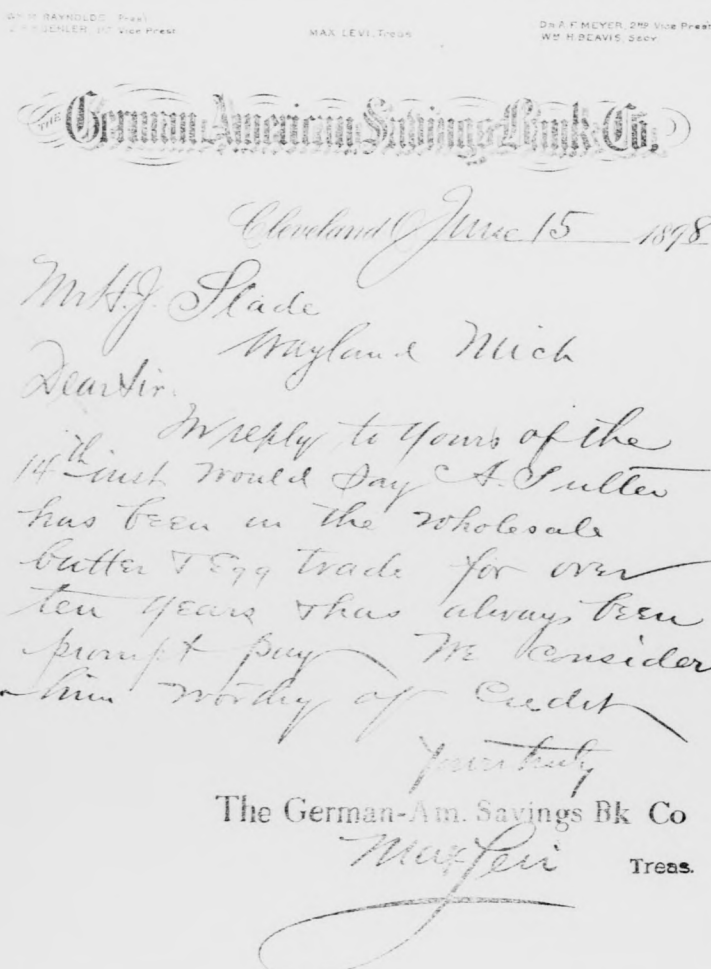 WM H RAYNOLDS Prest
1st Vice Prest
MAX LEVI, Treas
DR A F MEYER, 2ND Vice Prest
WM H BEAVIS, Secy
THE German American Savings Bank Co.
Cleveland O June 15 1898
Mr H. J. Slade
Wayland Mich
Dear Sir.
In reply to yours of the
14th inst would say A.
has been in the wholesale
butter & Egg trade for over
ten years & has always been
prompt pay We consider
him worthy of Credit
Yours truly
The German-Am. Savings Bk Co
Max Levi Treas.